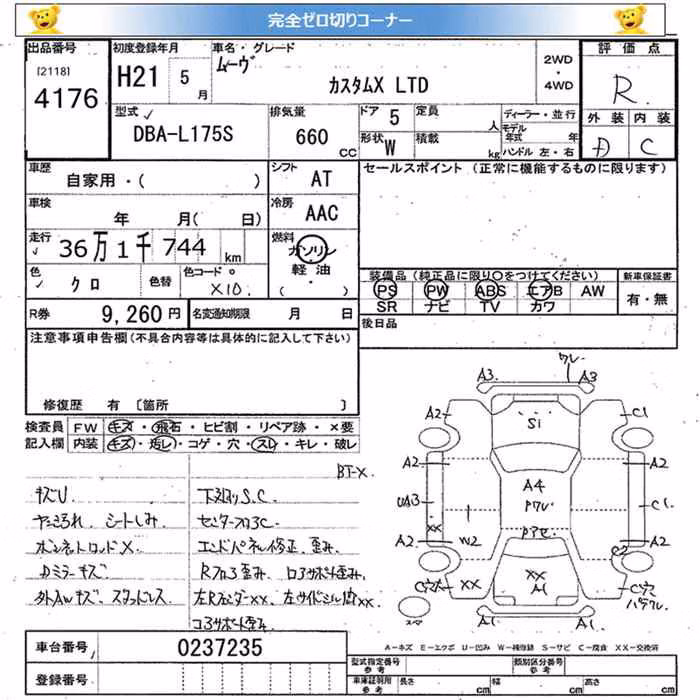 完全ゼロ切りコーナー
出品番号 初度登録年月 車名・グレード 評価点
[2118] H21 5月 ムーヴ 2WD・4WD
4176 カスタムX LTD R
型式 排気量 ドア 5 定員 人 ディーラー・並行 外装 内装
DBA-L175S 660 CC 形状 W 積載 kg モデル年式 年 ハンドル 左・右 D C
車歴 自家用・( ) シフト AT セールスポイント (正常に機能するものに限ります)
車検 年 月( 日) 冷房 AAC
走行 36万1千744 km 燃料 ガソリン・軽油・( )
色 クロ 色替 色コード X10. 装備品 (純正品に限り○をつけてください) 新車保証書
PS PW ABS エアB AW 有・無
SR ナビ TV カワ
R券 9,260円 名変通知期限 月 日 後日品
注意事項申告欄(不具合内容等は具体的に記入して下さい)
修復歴 有 [箇所 ]
検査員 FW キズ・飛石・ヒビ割・リペア跡・×要
記入欄 内装 キズ・汚レ・コゲ・穴・スレ・キレ・破レ
BT-X.
キズU 下廻りS.C.
シートしみ センターフロアC.
ボンネットロッドX. エンドパネル修正、歪み
Dミラーキズ Rフロア歪み、ロアサポート歪み、
外AWキズ、スタッドレス 左Rフェンダーxx、左サイドシル
コアサポート歪み
ワレ
A3 A3
A2 S1 C1
A2 A4 A2
UA3 C1
xx W2
A2 C2 A2
xx xx C穴
A1
A1 A1
A-キズ E-エクボ U-凹み W-補修跡 S-サビ C-腐食 XX-交換済
車台番号 0237235 型式指定番号 参考 類別区分番号 参考
登録番号 車庫証明用 参考 長さ cm 幅 cm 高さ cm